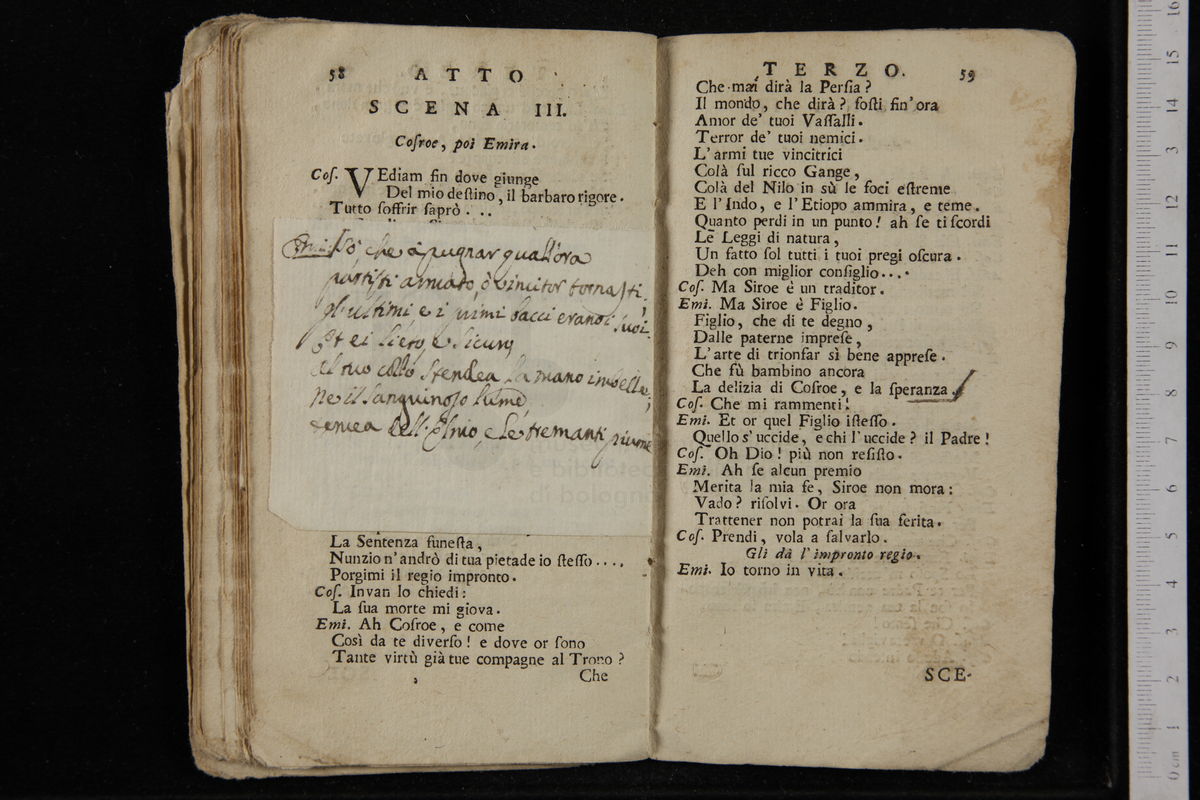 58 ATTO
SCENA III.
Coſroe, poì Emira.
Coſ. VEdiam fin dove giunge
Del mio deſtino, il barbaro rigore.
Tutto ſoffrir ſaprò. ..
Emi. Sò che à pugnar quall'ora
partiſti armato, ò vincitor tornaſti,
gl'ultimi e i primi bacci erano i ſuoi
Et ei lieto, e ſicuro
al tuo collo ſtendea la mano imbelle
ne il ſanguinoſo lume
temea dell'Elmo, e le tremanti piume
e bibliotec
di bologna
La Sentenza funeſta,
Nunzio n'andrò di tua pietade io ſteſſo....
Porgimi il regio impronto.
Coſ. Invan lo chiedi:
La ſua morte mi giova.
Emi. Ah Coſroe, e come
Così da te diverſo! e dove or ſono
Tante virtù già tue compagne al Trono?
Che
TERZO. 59
Che mai dirà la Perſia?
Il mondo, che dirà? foſti fin'ora
Amor de' tuoi Vaſſalli.
Terror de' tuoi nemici.
L'armi tue vincitrici
Colà ſul ricco Gange,
Colà del Nilo in sù le foci eſtreme
E l'Indo, e l'Etiopo ammira, e teme.
Quanto perdi in un punto! ah ſe ti ſcordi
Le Leggi di natura,
Un fatto ſol tutti i tuoi pregi oſcura.
Deh con miglior conſiglio....
Coſ. Ma Siroe è un traditor.
Emi. Ma Siroe è Figlio.
Figlio, che di te degno,
Dalle paterne impreſe,
L'arte di trionfar sì bene appreſe.
Che fù bambino ancora
La delizia di Coſroe, e la ſperanza.
Coſ. Che mi rammenti!
Emi. Et or quel Figlio iſteſſo.
Quello s'uccide, e chi l'uccide? il Padre!
Coſ. Oh Dio! più non reſiſto.
Emi. Ah ſe alcun premio
Merita la mia fe, Siroe non mora:
Vado? riſolvi. Or ora
Trattener non potrai la ſua ferita.
Coſ. Prendi, vola a ſalvarlo.
Gli dà l'impronto regio.
Emi. Io torno in vita.
SCE-